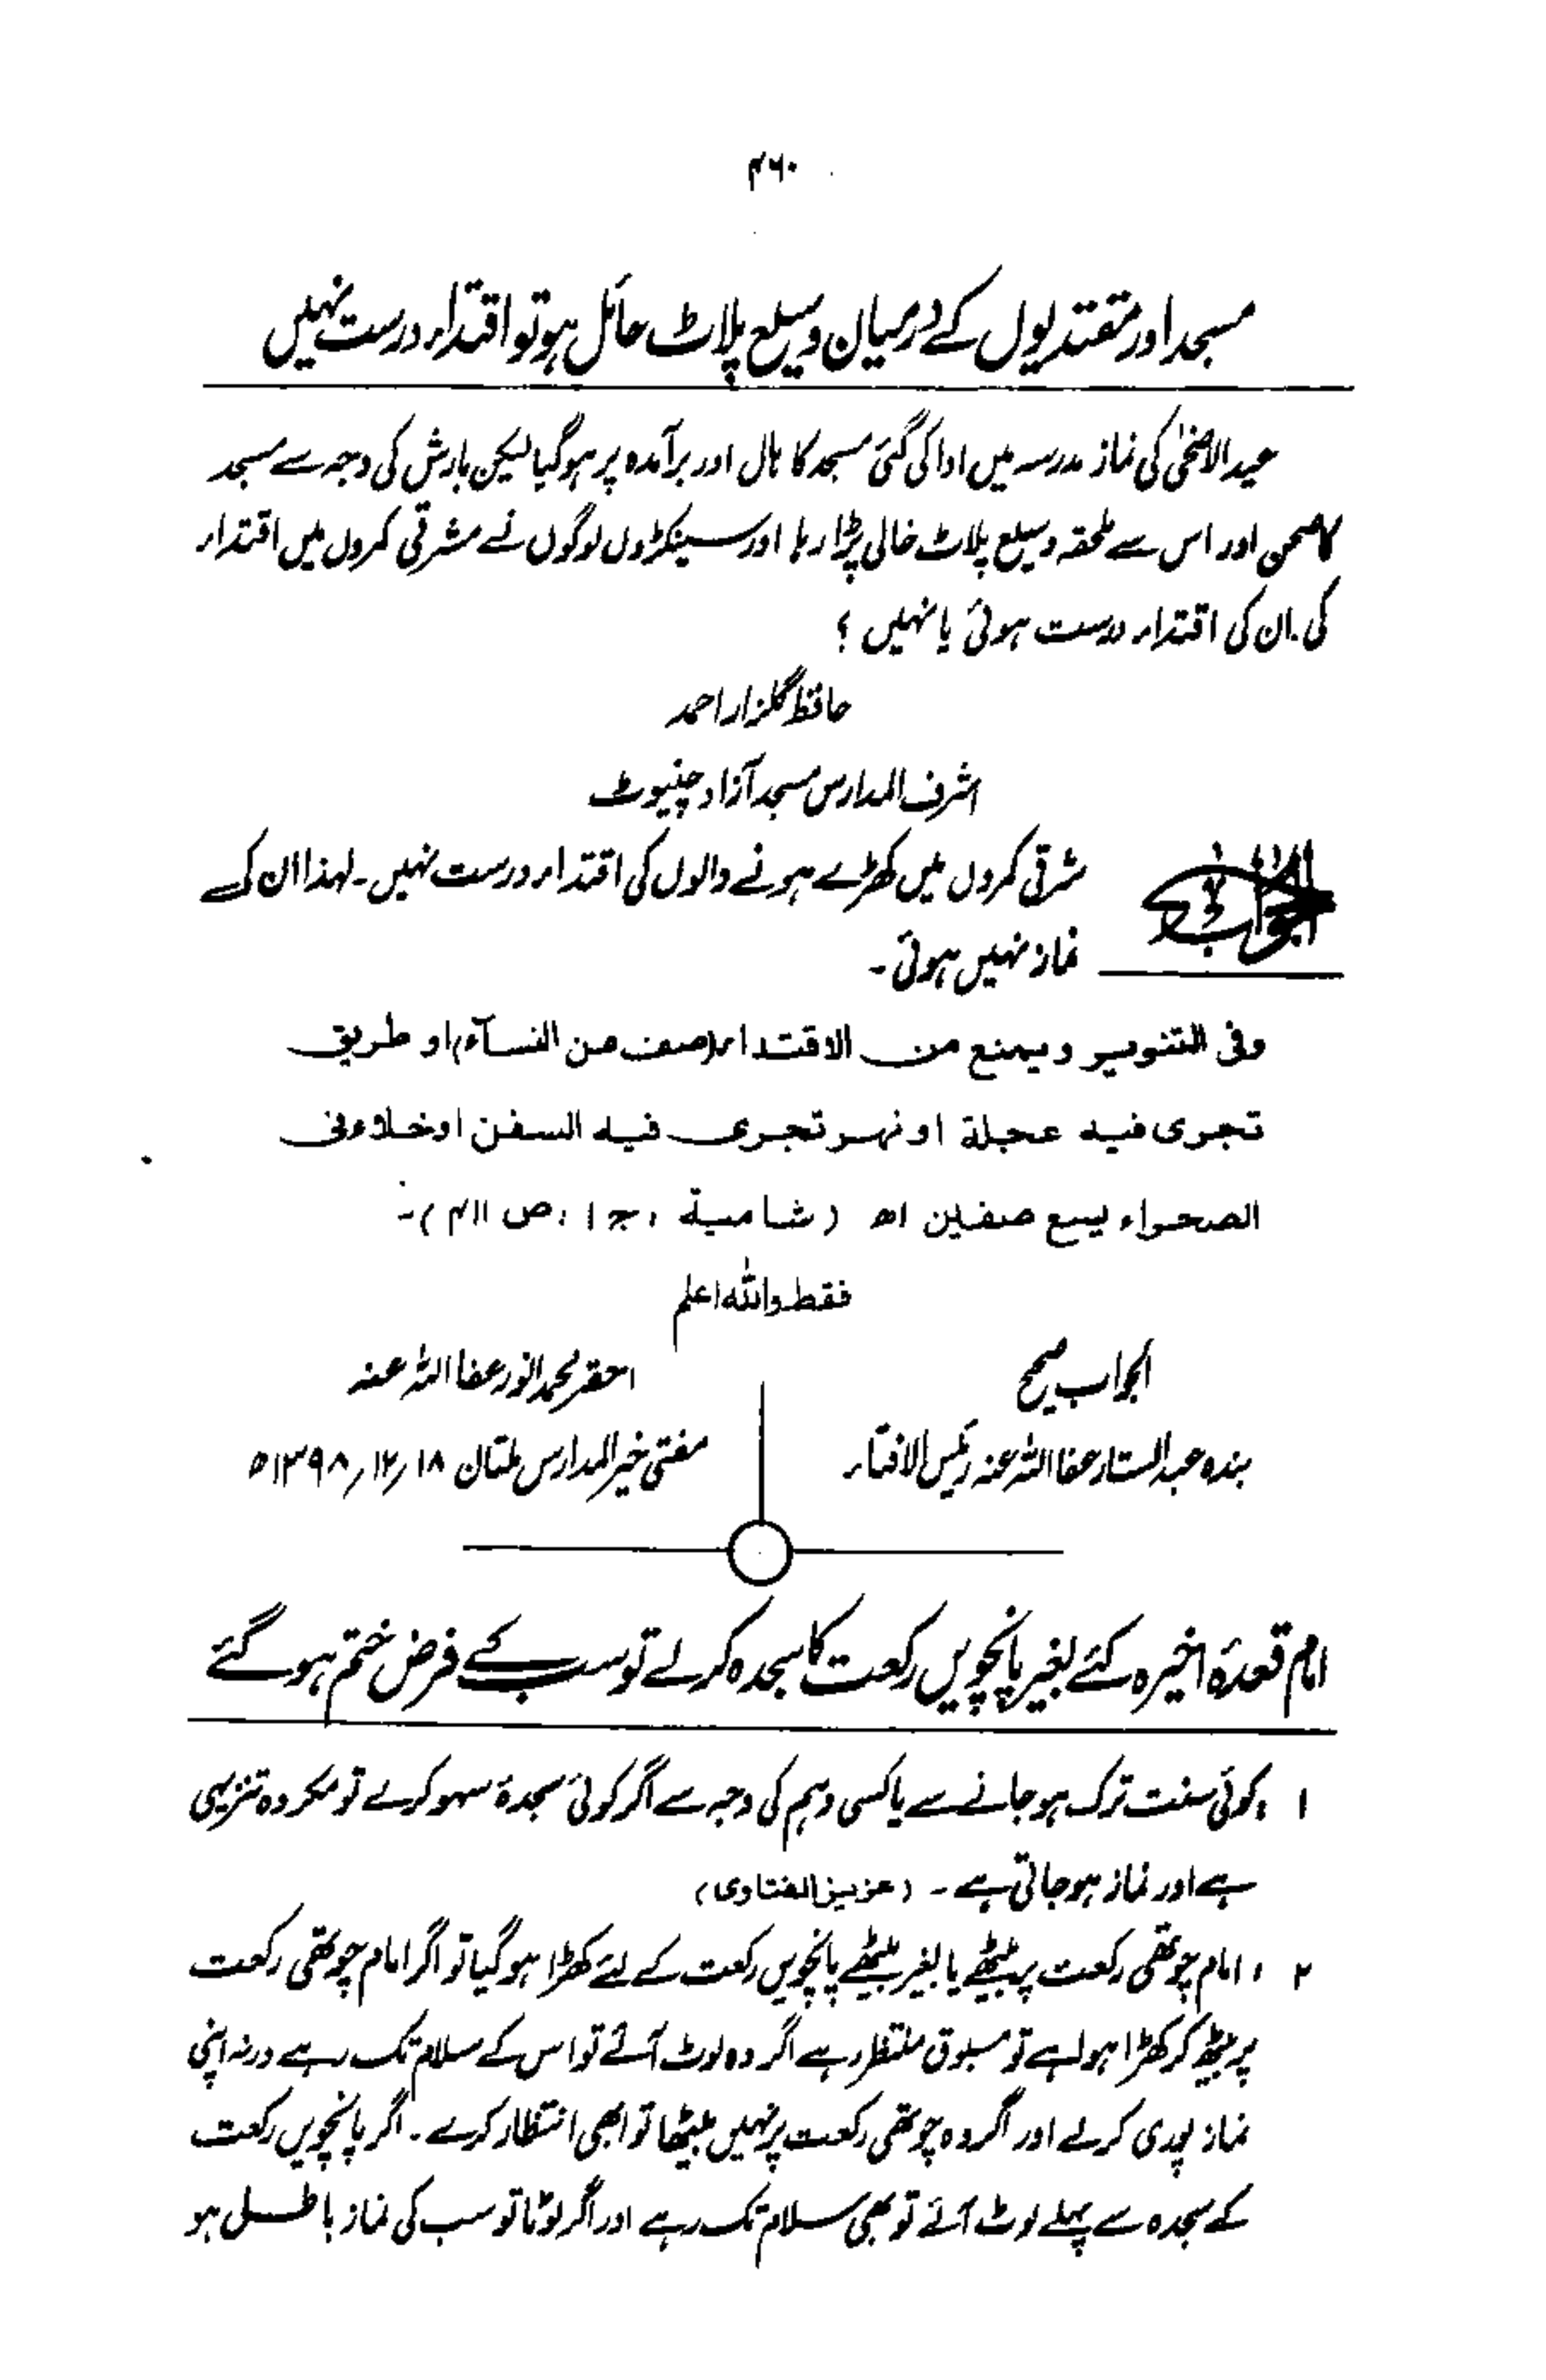 ۴۶۰
مسجد اور مقتدیوں کے درمیان وسیع پلاٹ حائل ہو تو اقتداء درست نہیں
عید الاضحیٰ کی نماز مدرسہ میں ادا کی گئی مسجد کا ہال اور برآمدہ پر ہو گیا لیکن بارش کی وجہ سے مسجد
کا صحن اور اس سے ملحقہ وسیع پلاٹ خالی پڑا رہا اور سینکڑوں لوگوں نے مشرقی کمروں میں اقتداء
کی۔ ان کی اقتداء درست ہوئی یا نہیں ؟
حافظ گلزار احمد
اشرف المدارس مسجد آزاد چنیوٹ
الجواب مشرقی کمروں میں کھڑے ہونے والوں کی اقتداء درست نہیں۔ لہذا ان کے
نماز نہیں ہوئی۔
وفی التنویر ویمنع من الاقتداء (صف من النسآء) او طریق
تجری فیہ عجلة او نہر تجری فیہ السفن او خلاء فی
الصحراء یسع صفین اھ (شامیة ، ج ا ، ص ۴۱۱)۔
فقط واللہ اعلم
الجواب صحیح
بندہ عبد الستار عفا اللہ عنہ رئیس الافتاء
احقر محمد انور عفا اللہ عنہ
مفتی خیر المدارس ملتان ۱۸/۱۲/۱۳۹۸ھ
امام قعدۂ اخیرہ کئے بغیر پانچویں رکعت کا سجدہ کرلے تو سب کے فرض ختم ہو گئے
۱ ، کوئی سنت ترک ہو جانے سے یا کسی وہم کی وجہ سے اگر کوئی سجدۂ سہو کرلے تو مکروہ تنزیہی
ہے اور نماز ہو جاتی ہے۔ (عزیز الفتاوی)
۲ ، امام چوتھی رکعت پر بیٹھے یا بغیر بیٹھے پانچویں رکعت کے لئے کھڑا ہو گیا تو اگر امام چوتھی رکعت
پر بیٹھ کر کھڑا ہوا ہے تو مسبوق منتظر رہے اگر وہ لوٹ آئے تو اس کے سلام تک رہے ورنہ اپنی
نماز پوری کرلے اور اگر وہ چوتھی رکعت پر نہیں بیٹھا تو ابھی انتظار کرے۔ اگر پانچویں رکعت
کے سجدہ سے پہلے لوٹ آئے تو بھی سلام تک رہے اور اگر لوٹا تو سب کی نماز باطل ہو